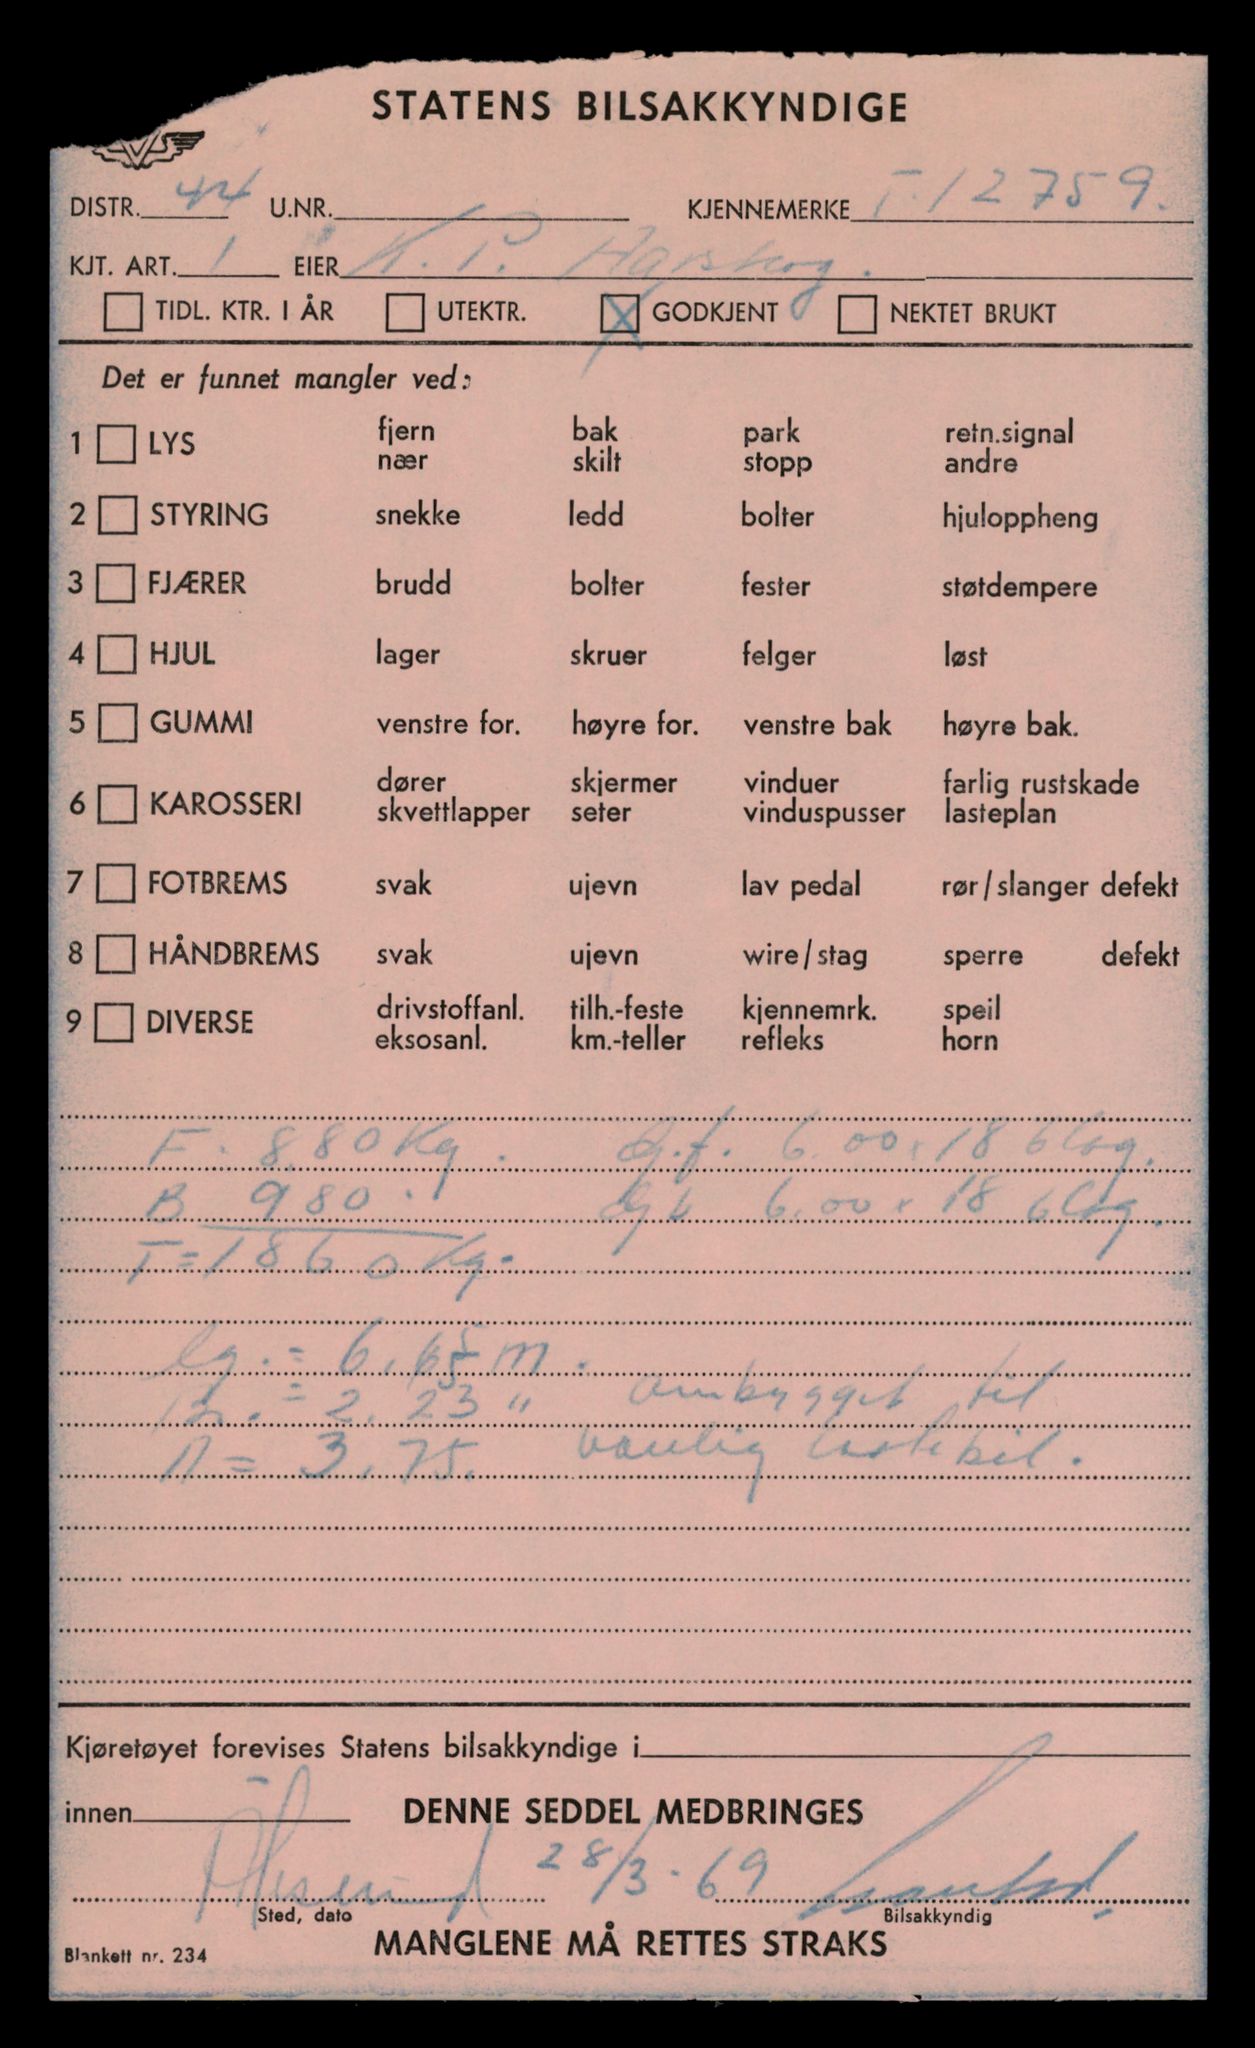 STATENS BILSAKKYNDIGE
DISTR. 44 U.NR. KJENNEMERKE T-12759.
KJT. ART. 1 EIER K. P. Harshog.
TIDL. KTR. I ÅR UTEKTR. X GODKJENT NEKTET BRUKT
Det er funnet mangler ved:
1 LYS fjern bak park retn.signal
nær skilt stopp andre
2 STYRING snekke ledd bolter hjuloppheng
3 FJÆRER brudd bolter fester støtdempere
4 HJUL lager skruer felger løst
5 GUMMI venstre for. høyre for. venstre bak høyre bak.
6 KAROSSERI dører skjermer vinduer farlig rustskade
skvettlapper seter vinduspusser lasteplan
7 FOTBREMS svak ujevn lav pedal rør/slanger defekt
8 HÅNDBREMS svak ujevn wire/stag sperre defekt
9 DIVERSE drivstoffanl. tilh.-feste kjennemrk. speil
eksosanl. km.-teller refleks horn
F. 880 Kg. G.f. 6.00 x 18 6 lag.
B 980. G b 6.00 x 18 6 lag.
T = 1860 Kg.
lg. = 6,65 m.
Br. = 2.23 " ombygget til
A = 3.75. vanlig lastebil.
Kjøretøyet forevises Statens bilsakkyndige i
innen DENNE SEDDEL MEDBRINGES
Ålesund 28/3-69
Sted, dato Bilsakkyndig
MANGLENE MÅ RETTES STRAKS
Blankett nr. 234